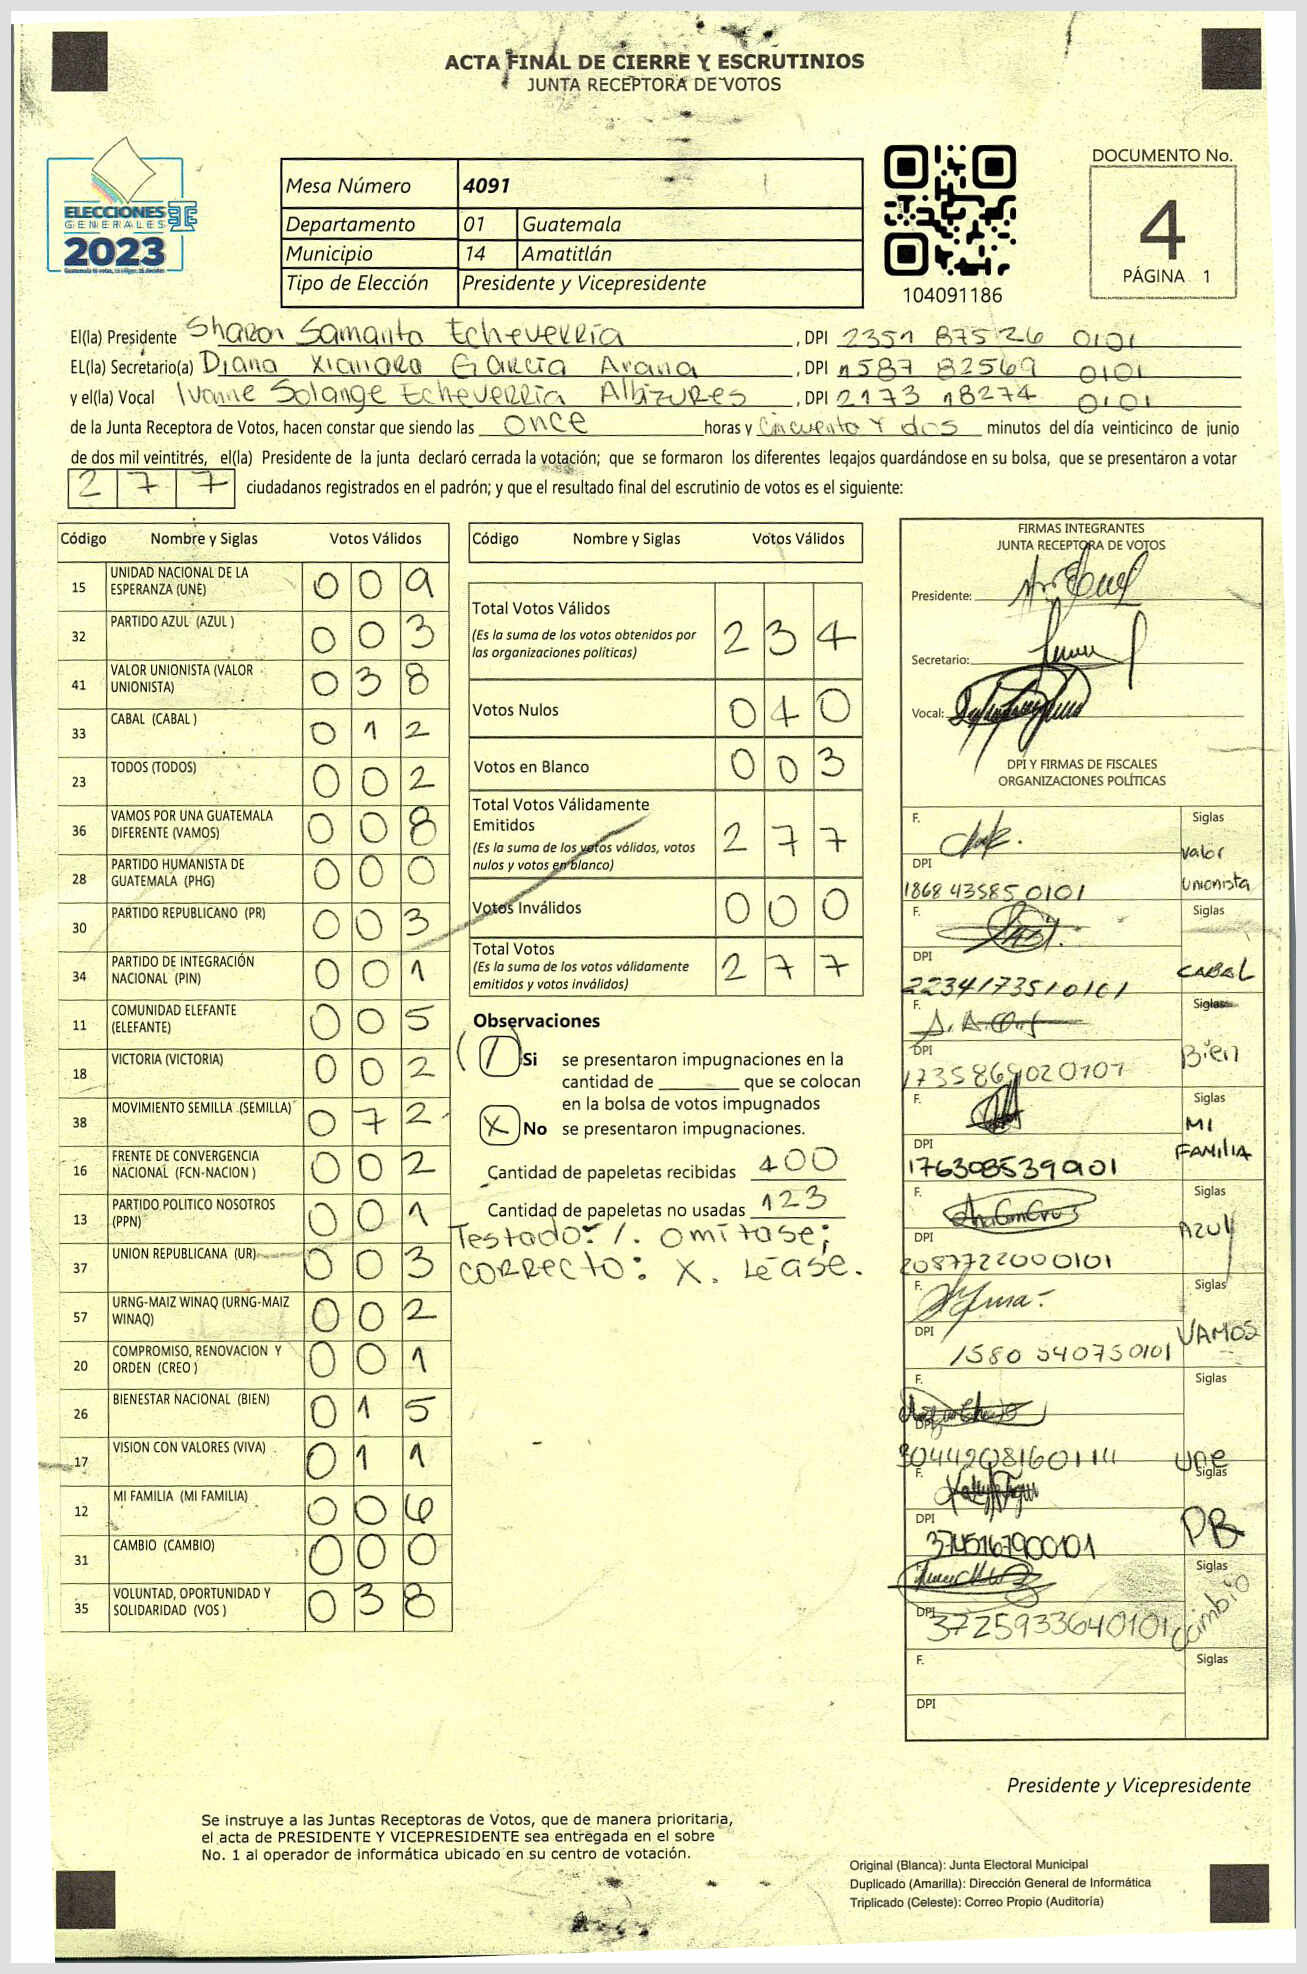 ACTA FINAL DE CIERRE Y ESCRUTINIOS
JUNTA RECEPTORA DE VOTOS
ELECCIONES
GENERALES
2023
Mesa Número 4091
Departamento 01 Guatemala
Municipio 14 Amatitlán
Tipo de Elección Presidente y Vicepresidente
104091186
DOCUMENTO No.
4
PÁGINA 1
El(la) Presidente Sharon Samanta Echeverría, DPI 2351 87526 0101
EL(la) Secretario(a) Diana Xiomara García Arana, DPI 1587 82569 0101
y el(la) Vocal Ivonne Solange Echeverría Albizures, DPI 2173 18274 0101
de la Junta Receptora de Votos, hacen constar que siendo las once horas y Cincuenta y dos minutos del día veinticinco de junio
de dos mil veintitrés, el(la) Presidente de la junta declaró cerrada la votación; que se formaron los diferentes legajos guardándose en su bolsa, que se presentaron a votar
277 ciudadanos registrados en el padrón; y que el resultado final del escrutinio de votos es el siguiente:
Código Nombre y Siglas Votos Válidos
15 UNIDAD NACIONAL DE LA ESPERANZA (UNE) 009
32 PARTIDO AZUL (AZUL ) 003
41 VALOR UNIONISTA (VALOR UNIONISTA) 038
33 CABAL (CABAL ) 012
23 TODOS (TODOS) 002
36 VAMOS POR UNA GUATEMALA DIFERENTE (VAMOS) 008
28 PARTIDO HUMANISTA DE GUATEMALA (PHG) 000
30 PARTIDO REPUBLICANO (PR) 003
34 PARTIDO DE INTEGRACIÓN NACIONAL (PIN) 001
11 COMUNIDAD ELEFANTE (ELEFANTE) 005
18 VICTORIA (VICTORIA) 002
38 MOVIMIENTO SEMILLA (SEMILLA) 072
16 FRENTE DE CONVERGENCIA NACIONAL (FCN-NACION ) 002
13 PARTIDO POLITICO NOSOTROS (PPN) 001
37 UNION REPUBLICANA (UR) 003
57 URNG-MAIZ WINAQ (URNG-MAIZ WINAQ) 002
20 COMPROMISO, RENOVACION Y ORDEN (CREO ) 001
26 BIENESTAR NACIONAL (BIEN) 015
17 VISION CON VALORES (VIVA) 011
12 MI FAMILIA (MI FAMILIA) 006
31 CAMBIO (CAMBIO) 000
35 VOLUNTAD, OPORTUNIDAD Y SOLIDARIDAD (VOS ) 038
Código Nombre y Siglas Votos Válidos
Total Votos Válidos 234
(Es la suma de los votos obtenidos por
las organizaciones políticas)
Votos Nulos 040
Votos en Blanco 003
Total Votos Válidamente
Emitidos 277
(Es la suma de los votos válidos, votos
nulos y votos en blanco)
Votos Inválidos 000
Total Votos 277
(Es la suma de los votos válidamente
emitidos y votos inválidos)
Observaciones
(/) Si se presentaron impugnaciones en la
cantidad de ________ que se colocan
en la bolsa de votos impugnados
X No se presentaron impugnaciones.
Cantidad de papeletas recibidas 400
Cantidad de papeletas no usadas 123
Testado: /. omítase;
correcto: X. Léase.
FIRMAS INTEGRANTES
JUNTA RECEPTORA DE VOTOS
Presidente:
Secretario:
Vocal:
DPI Y FIRMAS DE FISCALES
ORGANIZACIONES POLÍTICAS
F. Siglas
Valor
Unionista
DPI
1868 43585 0101
F. Siglas
CABAL
DPI
2234173510101
F. Siglas
Bien
DPI
1735869020101
F. Siglas
MI
FAMILIA
DPI
1763085390101
F. Siglas
AZUL
DPI
2087722000101
F. Siglas
VAMOS
DPI
1580 540750101
F. Siglas
une
DPI
3044208160114
F. Siglas
PR
DPI
3745167900101
F. Siglas
Cambio
DPI
3725933640101
F. Siglas
DPI
Presidente y Vicepresidente
Se instruye a las Juntas Receptoras de Votos, que de manera prioritaria,
el acta de PRESIDENTE Y VICEPRESIDENTE sea entregada en el sobre
No. 1 al operador de informática ubicado en su centro de votación.
Original (Blanca): Junta Electoral Municipal
Duplicado (Amarilla): Dirección General de Informática
Triplicado (Celeste): Correo Propio (Auditoría)